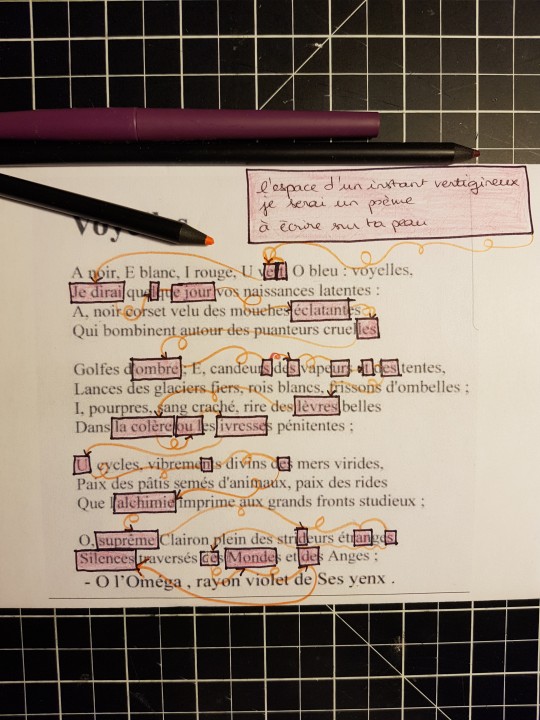 l'espace d'un instant vertigineux
je serai un poème
à écrire sur ta peau
Voyelles
A noir, E blanc, I rouge, U vert, O bleu : voyelles,
Je dirai quelque jour vos naissances latentes :
A, noir corset velu des mouches éclatantes
Qui bombinent autour des puanteurs cruelles
Golfes d'ombre ; E, candeurs des vapeurs et des tentes,
Lances des glaciers fiers, rois blancs, frissons d'ombelles ;
I, pourpres, sang craché, rire des lèvres belles
Dans la colère ou les ivresses pénitentes ;
U, cycles, vibrements divins des mers virides,
Paix des pâtis semés d'animaux, paix des rides
Que l'alchimie imprime aux grands fronts studieux ;
O, suprême Clairon plein des strideurs étranges,
Silences traversés des Mondes et des Anges ;
- O l'Oméga , rayon violet de Ses yenx .